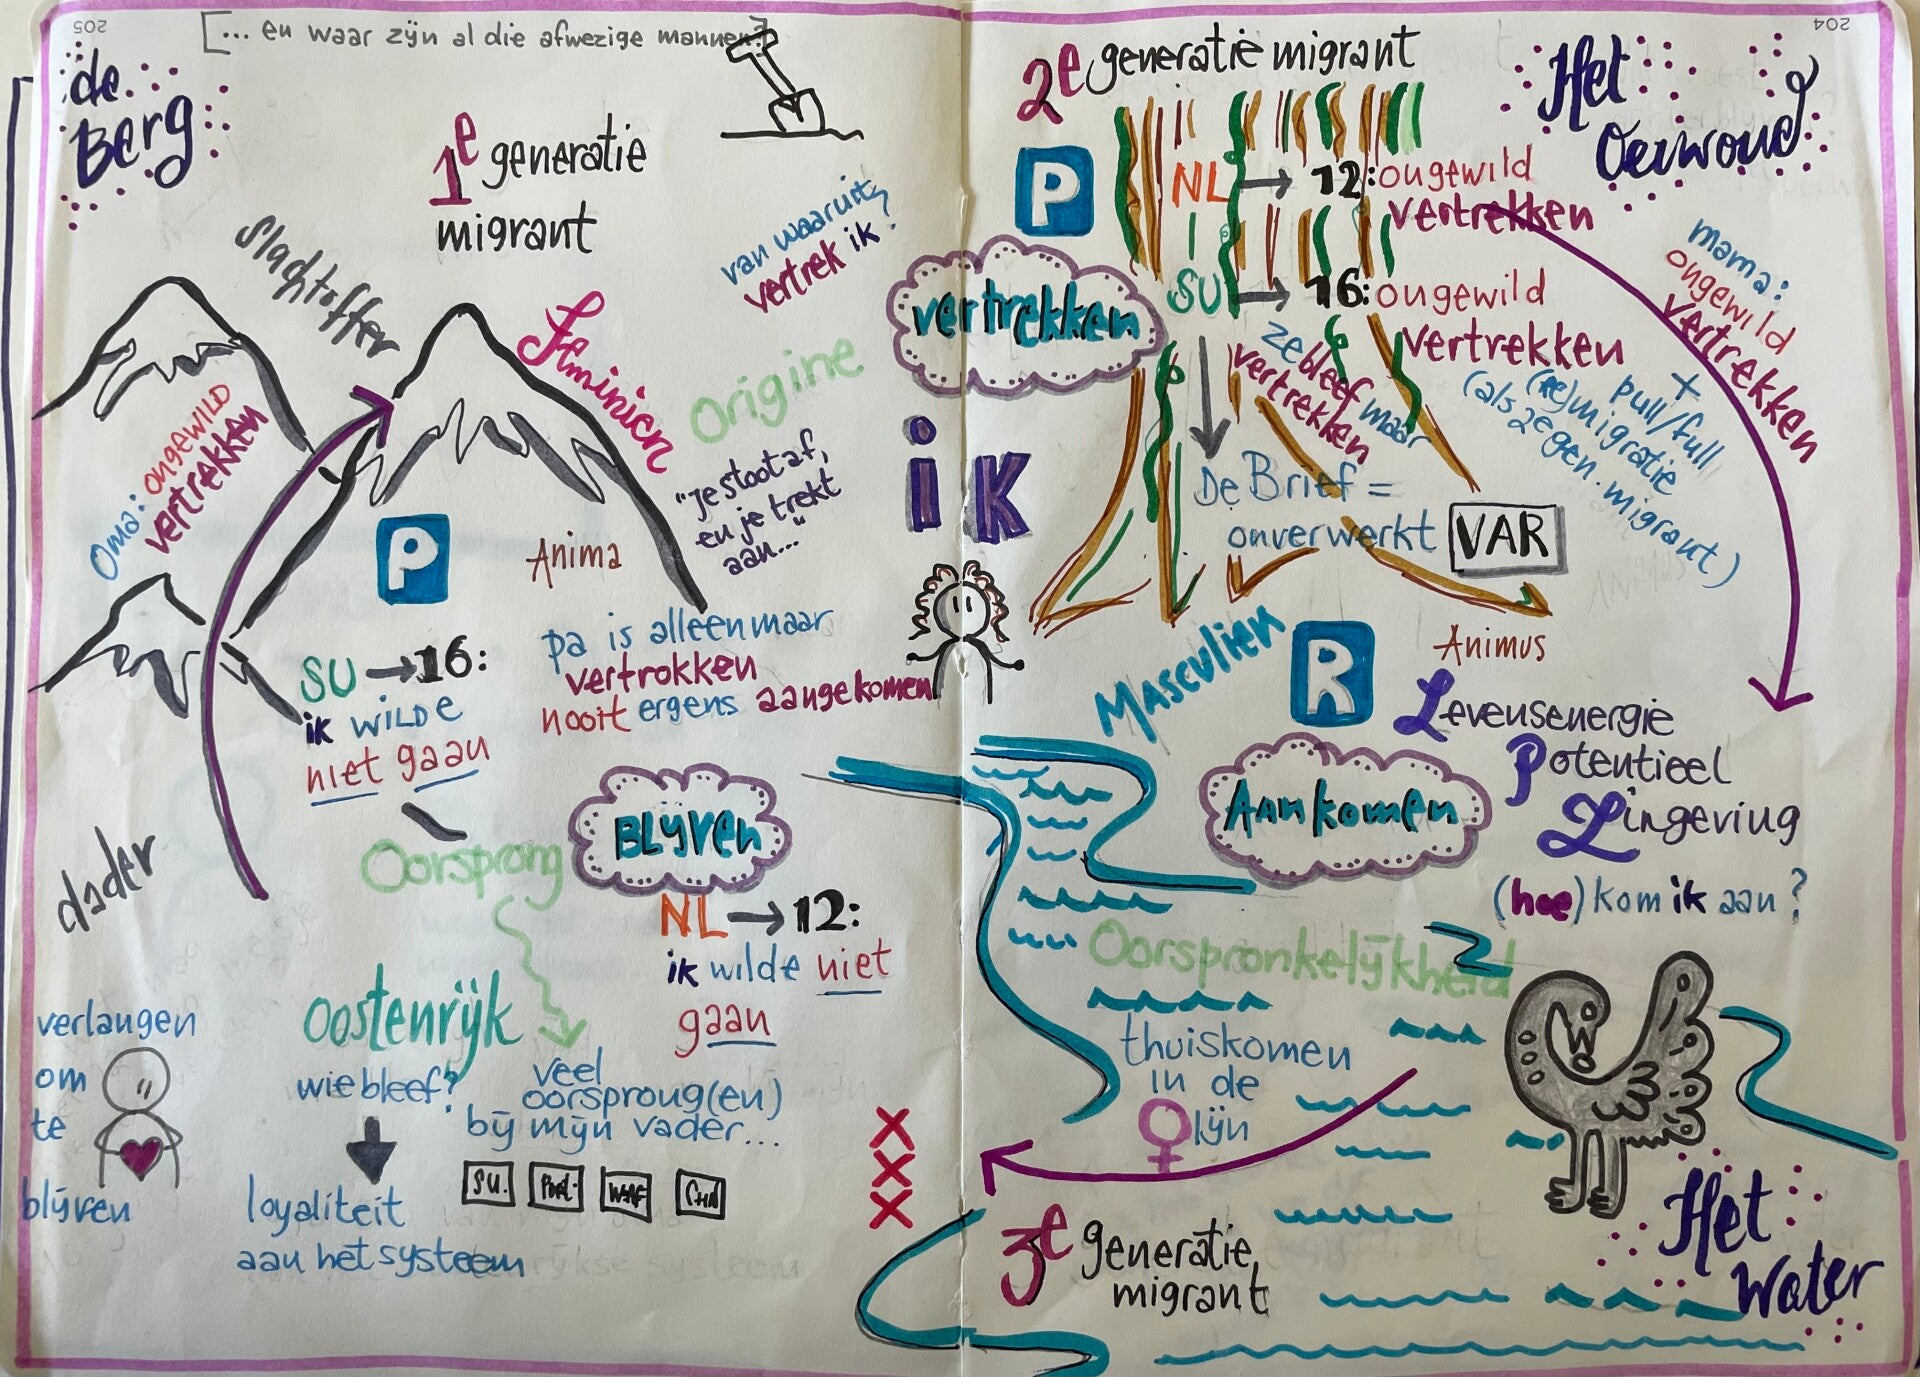 205
[... en waar zijn al die afwezige mannen?]
de
Berg
1e generatie
migrant
Slachtoffer
van waaruit
vertrek ik?
Feminien
Origine
Oma: ongewild
vertrekken
"je stoot af,
en je trekt
aan..."
P
Anima
SU → 16:
ik wilde
niet gaan
pa is alleen maar
vertrokken
nooit ergens aangekomen
Blijven
Oorsprong
NL → 12:
ik wilde niet
gaan
dader
verlangen
om
te
blijven
Oostenrijk
wie bleef?
loyaliteit
aan het systeem
veel
oorsprong(en)
bij mijn vader...
SU.
XXX
204
2e generatie migrant
Het
Oerwoud
P
NL → 12: ongewild
vertrekken
vertrekken
SU → 16: ongewild
vertrekken
ze bleef maar
vertrekken
mama:
ongewild
vertrekken
+
pull/full
(re)migratie
(als 2e gen. migrant)
ik
De Brief =
onverwerkt
VAR
Masculien
R
Animus
Levensenergie
Potentieel
Zingeving
Aankomen
(hoe) kom ik aan?
Oorspronkelijkheid
thuiskomen
in de
♀ lijn
3e generatie
migrant
Het
Water